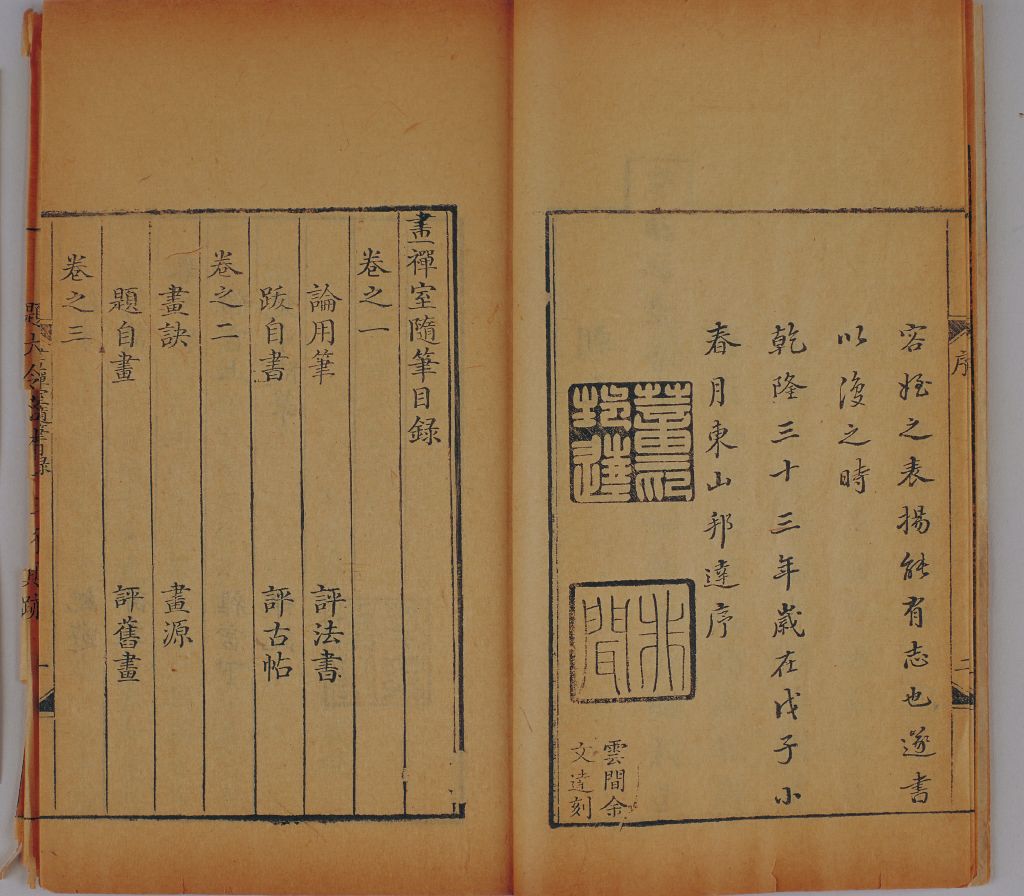 序 二
容姪之表揚能有志也遂書
以復之時
乾隆三十三年歲在戊子小
春月東山邦達序
董邦達印
雲間余
文達刻
畫禪室隨筆目録
卷之一
論用筆 評法書
跋自書 評古帖
卷之二
畫訣 畫源
題自畫 評舊畫
卷之三